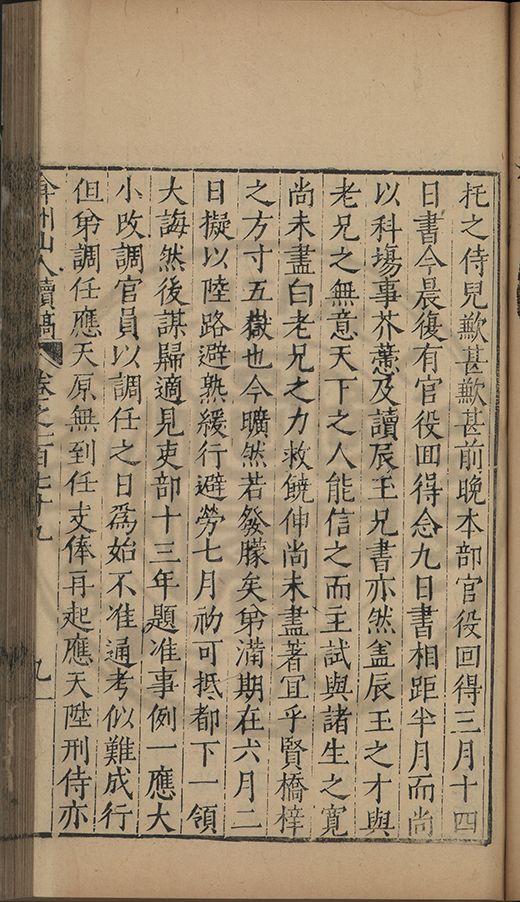 托之侍兒歉甚歉甚前晚本部官役回得三月十四
日書今晨復有官役囬得念九日書相距半月而尚
以科塲事芥蔕及讀辰玉兄書亦然盖辰玉之才與
老兄之無意天下之人能信之而主試與諸生之寛
尚未盡白老兄之力救饒伸尚未盡著宜乎賢橋梓
之方寸五嶽也今曠然若發朦矣弟滿期在六月二
日擬以陸路避熱緩行避勞七月初可抵都下一領
大誨然後謀歸適見吏部十三年題准事例一應大
小改調官員以調任之日爲始不准通考似難成行
但弟調任應天原無到任支俸再起應天陞刑侍亦
弇州山人續稿 卷之一百七十九 九